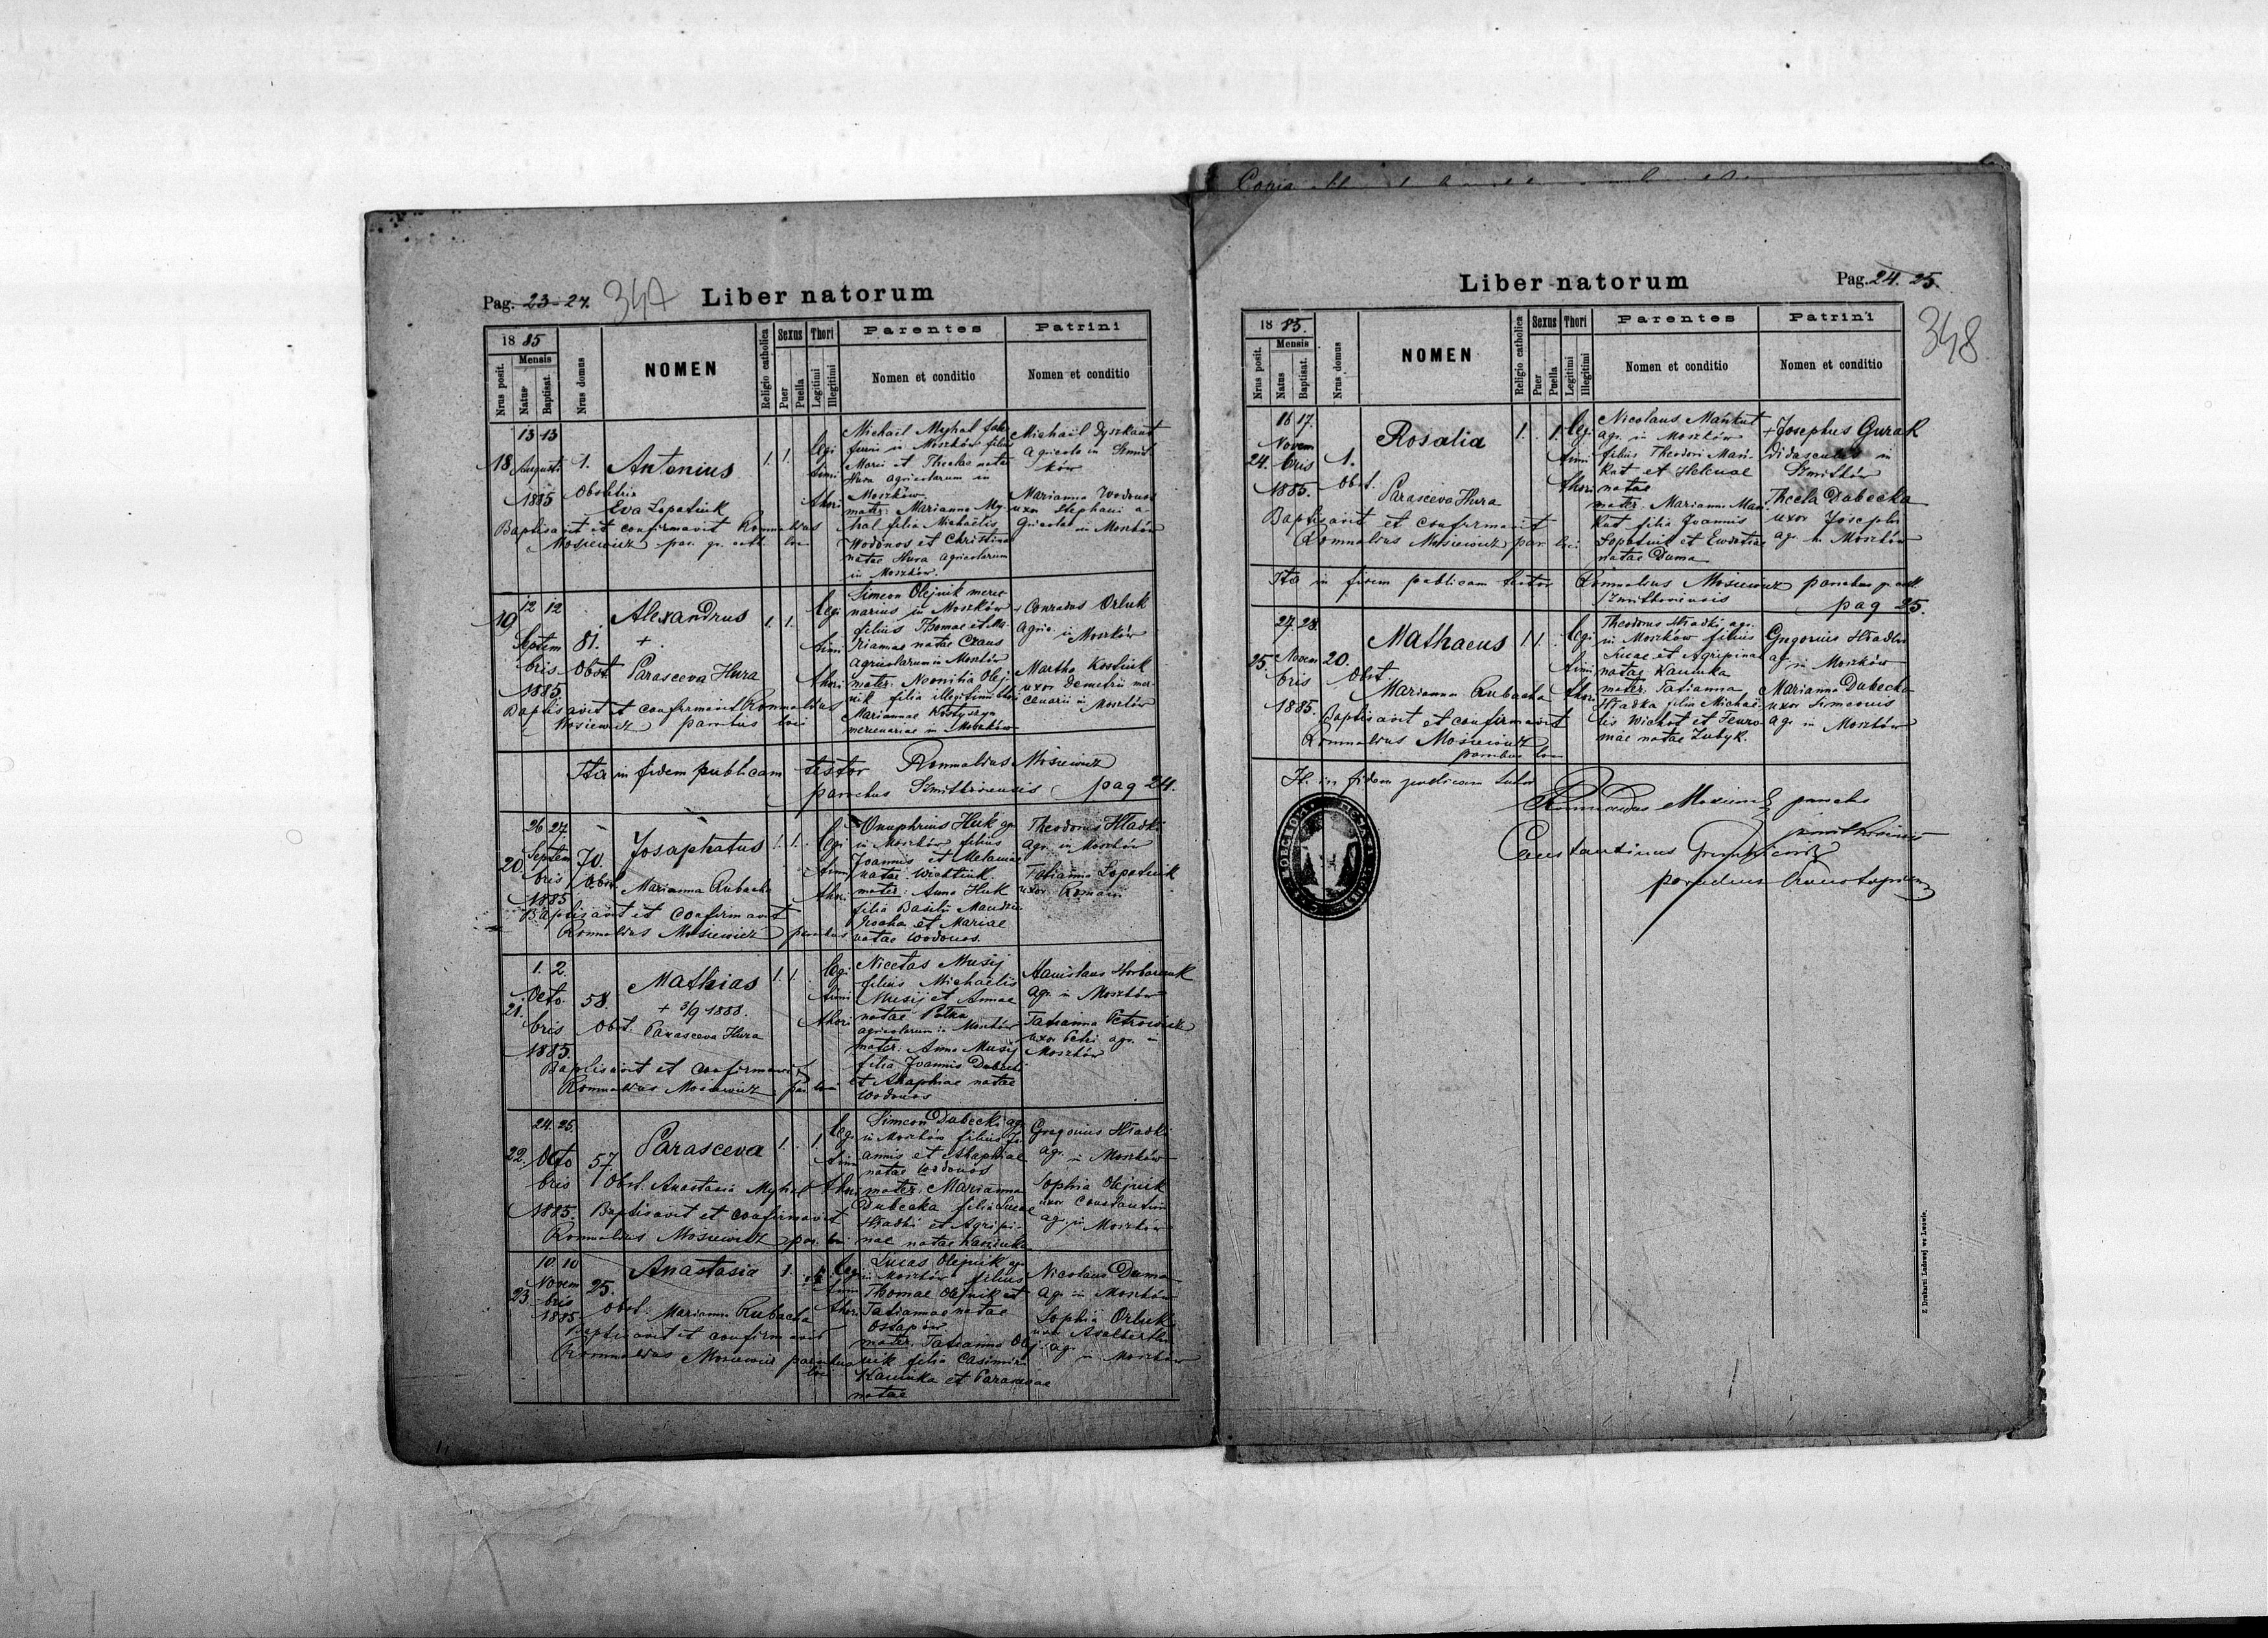 Pag. 23-24.
347
Liber natorum
18 85
Mensis
Nrus posit.
Natus
Baptisat.
Nrus domus
NOMEN
Religio catholica
Sexus
Puer
Puella
Thori
Legitimi
Illegitimi
Parentes
Nomen et conditio
Patrini
Nomen et conditio
18
13 13
Augusti
1885
1.
Antonius
Obstetrix
Eva Lopatiuk
Baptisavit et confirmavit Romualdus
Mosiewicz par. gr. cath. loci
1. 1.
legi
timi
thori
Michaël Myhal
in Moszków filius
Marci et Theclae natae
Hura agricolarum in
Moszków
mater: Marianna My-
hal filia Michaëlis
Wodonos et Christinae
natae Hura agricolarum
in Moszków.
Michaël Dyszkant
agricola in Szmit
ków
Marianna Wodonos
uxor Stephani a-
gricolae in Moszków
19
12 12
Septem
bris
1885.
81.
Alexandrus
+
Obst. Parasceva Hura
Baptisavit et confirmavit Romualdus
Mosiewicz parochus loci
1. 1.
legi
timi
thori
Simeon Olejnik merce
narius in Moszków
filius Thomae et Ma
riannae natae Czaus
agricolarum in Moszków
mater: Olej-
nik filia illegitimi thori
Mariannae
mercenariae in Moszków
+ Conradus Orluk
agric. in Moszków
Martha Kostiuk
uxor Demetrii mer-
cenarii in Moszków
Ita in fidem publicam testor Romualdus Mosiewicz
parochus Szmitkoviensis pag 24.
20.
26 27
Septem
bris
1885
70.
Josaphatus
Obst. Marianna Rubacha
Baptisavit et confirmavit
Romualdus Mosiewicz parochus
1. 1.
legi
timi
thori
Onuphrius Huk agr.
in Moszków filius
Joannis et Melaniae
natae
mater: Anna Huk
filia Basilii
et Mariae
natae Wodonos.
Theodorus Hładki
agr. in Moszków
Tatianna Lopatiuk
uxor Romani
21.
1. 2.
Octo.
bris
1885.
58.
Mathias
+ 3/9 1888.
Obst. Parasceva Hura
Baptisavit et confirmavit
Romualdus Mosiewicz par. loci
1. 1.
legi
timi
thori
Nicetas Musij
filius Michaëlis
Musij et Annae
natae Potka
agricolarum in Moszków
mater: Anna Musij
filia Joannis Dubecki
et Ahaphiae natae
Wodonos
Stanislaus
agr. in Moszków
Tatianna
uxor Petri agr. in
Moszków
22.
24. 25.
Octo
bris
1885.
57.
Parasceva
Obst. Anastasia Myhal
Baptisavit et confirmavit
Romualdus Mosiewicz par. loci
1. 1.
legi
timi
thori
Simeon Dubecki agr.
in Moszków filius Jo
annis et Ahaphiae
natae Wodonos
mater: Marianna
Dubecka filia Lucae
Hładki et Agripi-
nae natae Kaminka
Gregorius Hładki
agr. in Moszków
Sophia Olejnik
uxor Constantini
agr. in Moszków
23.
10 10
Novem
bris
1885
25.
Anastasia
Obst. Marianna Rubacha
Baptisavit et confirmavit
Romualdus Mosiewicz parochus
loci
1.
legi
timi
thori
Lucas Olejnik agr.
in Moszków filius
Thomae Olejnik et
Tatiannae natae
Ostapów
mater: Tatianna Olej-
nik filia Casimiri
Kaminka et Parascevae
natae
Nicolaus Duma
agr. in Moszków
Sophia Orluk
uxor Adalberti
agr. in Moszków
Liber natorum
Pag. 24. 25.
348
18 85.
Mensis
Nrus posit.
Natus
Baptisat.
Nrus domus
NOMEN
Religio catholica
Sexus
Puer
Puella
Thori
Legitimi
Illegitimi
Parentes
Nomen et conditio
Patrini
Nomen et conditio
24.
16 17.
Novem
bris
1885.
1.
Rosalia
Obst. Parasceva Hura
Baptisavit et confirmavit
Romualdus Mosiewicz par. loci
1. 1.
legi
timi
thori
Nicolaus Mankut
agr. in Moszków
filius Theodori Man-
kut et Helenae
natae
mater. Marianna Man-
kut filia Joannis
Lopatiuk et Eudokiae
natae Duma
+ Josephus Gurak
didasculus in
Szmitków
Thecla Dubecka
uxor Josephi
agr. in Moszków
Ita in fidem publicam testor Romualdus Mosiewicz parochus gr. cath.
Szmitkoviensis pag 25.
25.
27. 28.
Novem
bris
1885.
20.
Mathaeus
Obst.
Marianna Rubacha
Baptisavit et confirmavit
Romualdus Mosiewicz
parochus loci
1 1.
legi
timi
thori
Theodorus Hładki agr.
in Moszków filius
Lucae et Agripinae
natae Kaminka
mater. Tatianna
Hładka filia Michaë-
lis Wichot et Fewro-
niae natae Zubyk.
Gregorius Hładki
agr. in Moszków
Marianna Dubecka
uxor Simeonis
agr. in Moszków
Ita in fidem publicam testor
Romualdus Mosiewicz parochus
Constantinus
Z Drukarni Ludowej we Lwowie.